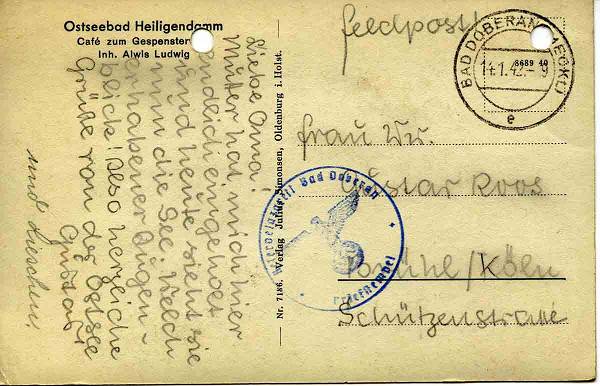 Ostseebad Heiligendamm
Café zum Gespenster
Inh. Alwis Ludwig
Liebe Oma!
Mutter hat mich hier
endlich eingeholt
und heute sieht sie
nun die See. Welch
erhabener Augen-
blick! Also herzliche
Grüße von der Ostsee
Gustav
und Luschen.
Nr. 7186. Verlag Julius Simonsen, Oldenburg i. Holst.
Feldpost!
BAD DOBERAN (MECKL)
14.1.42.- 9
e
Frau Ww.
Gustav Roos
Brühl/Köln
Schützenstraße
Bad Doberan
Briefstempel